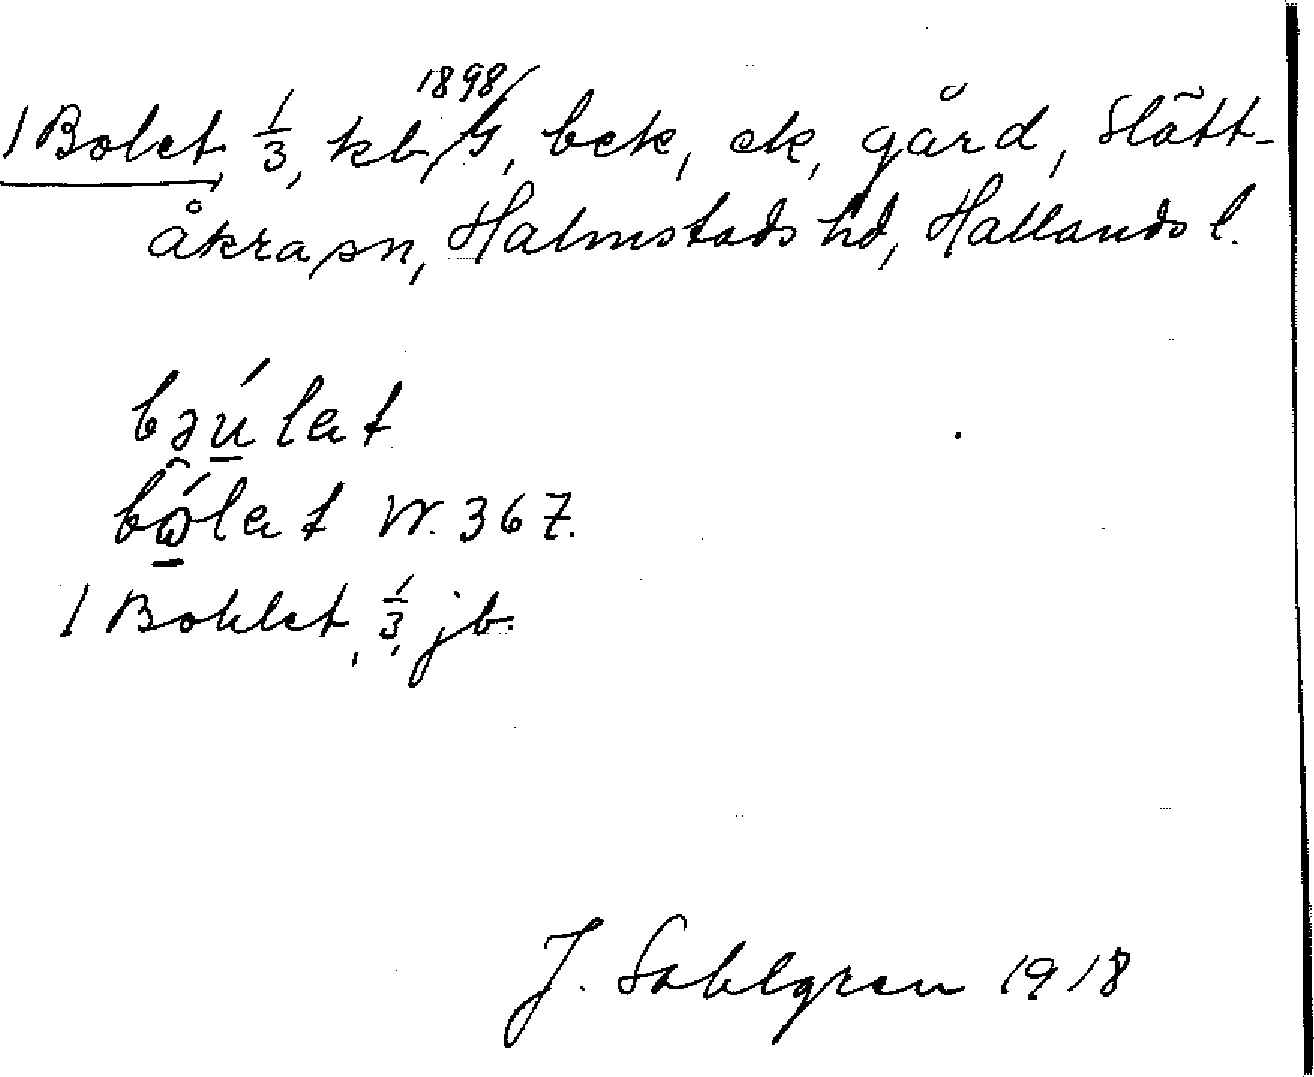 1898
1 Bolet, 1/3, kb, G, bek, ek, gård, Slätt-
åkra sn, Halmstads hd, Hallands l.
bəúlat
bω̂́lat W. 367.
1 Bohlet, 1/3, jb.
J. Sahlgren 1918